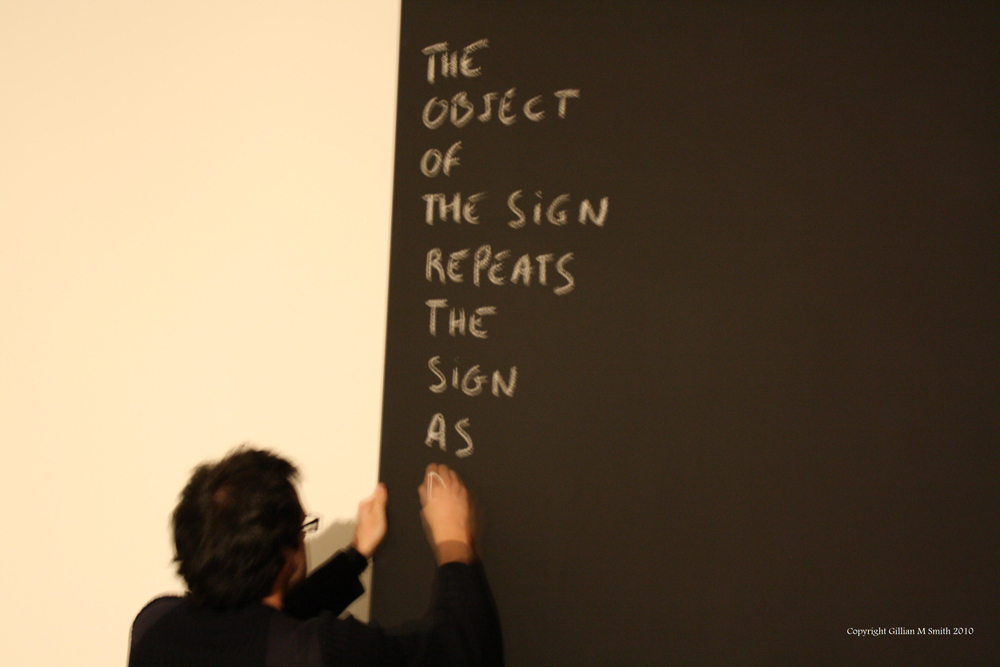 THE
OBJECT
OF
THE SiGN
REPEATS
THE
SiGN
AS
Copyright Gillian M Smith 2010